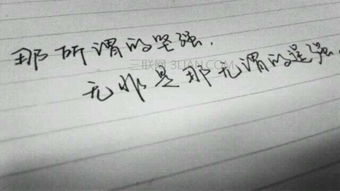 那所谓的坚强.
三联网 3LIAN.COM
无非是那无谓的逞强.